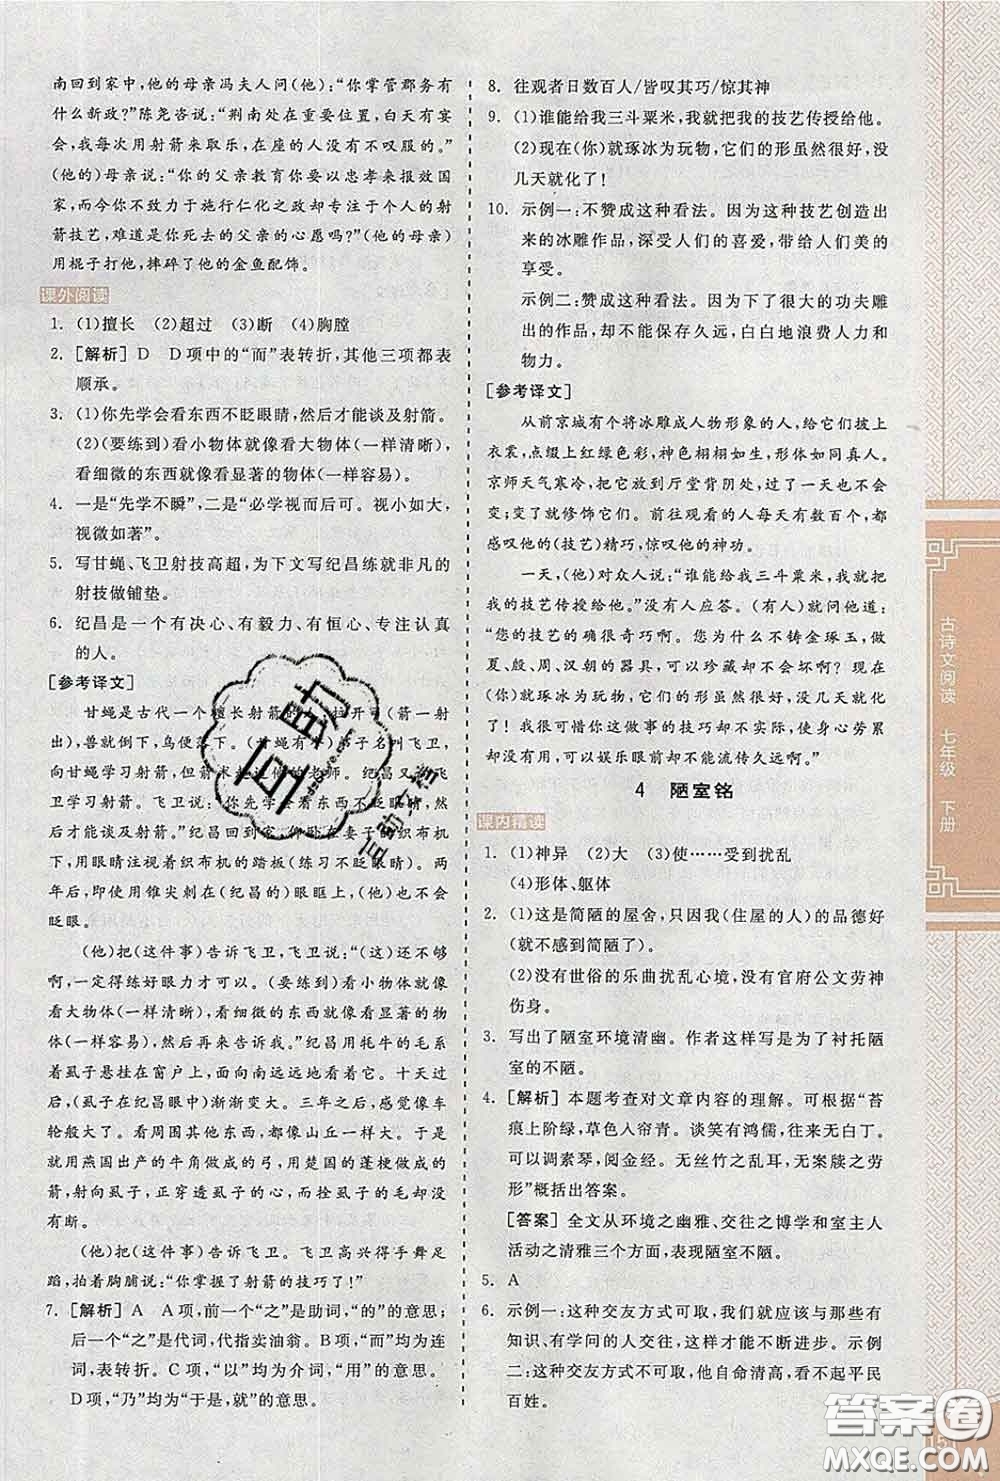 南回到家中，他的母亲冯夫人问(他)：“你掌管郡务有
什么新政?”陈尧咨说：“荆南处在重要位置，白天有宴
会，我每次用射箭来取乐，在座的人没有不叹服的。”
(他的)母亲说：“你的父亲教育你要以忠孝来报效国
家，而你不致力于施行仁化之政却专注于个人的射
箭技艺，难道是你死去的父亲的心愿吗?”(他的母亲)
用棍子打他，摔碎了他的金鱼配饰。
课外阅读
1. (1)擅长 (2)超过 (3)断 (4)胸膛
2. [解析] D D项中的“而”表转折，其他三项都表
顺承。
3. (1)你先学会看东西不眨眼睛，然后才能谈及射箭。
(2)(要练到)看小物体就像看大物体(一样清晰)，
看细微的东西就像看显著的物体(一样容易)。
4. 一是“先学不瞬”，二是“必学视而后可。视小如大，
视微如著”。
5. 写甘蝇、飞卫射技高超，为下文写纪昌练就非凡的
射技做铺垫。
6. 纪昌是一个有决心、有毅力、有恒心、专注认真
的人。
[参考译文]
甘蝇是古代一个擅长射箭的人，拉开弓(箭一射
出)，兽就倒下，鸟便落下。甘蝇有个弟子名叫飞卫，
向甘蝇学习射箭，但箭术超过他的老师。纪昌又向飞
卫学习射箭。飞卫说：“你先学会看东西不眨眼睛，然
后才能谈及射箭。”纪昌回家，仰卧在妻子的织布机
下，用眼睛注视着织布机的踏板(练习不眨眼睛)。两
年后，即使用锥尖刺在(纪昌的)眼眶上，(他)也不会
眨眼。
(他)把(这件事)告诉飞卫，飞卫说：“(这)还不够
啊，一定得练好眼力才行。(要练到)看小物体就像看
大物体(一样清晰)，看细微的东西就像看显著的物
体(一样容易)，然后再来告诉我。”纪昌用牦牛的毛系
着虱子悬挂在窗户上，面向南远远地看着它。十天过
后，(虱子在纪昌眼中)渐渐变大。三年之后，感觉像车
轮般大了。用这种方法看其他东西，都像山丘一样大。于是
就用燕国出产的牛角做成的弓，用蓬梗做成的箭
杆，射向虱子，正穿透虱子的心，而拴虱子的毛却没
有断。
(他)把(这件事)告诉飞卫。飞卫高兴得手舞足
蹈，拍着胸脯说：“你掌握了射箭的技巧了!”
7. [解析] A A项，前一个“之”是助词，“的”的意思；
后一个“之”是代词，代指卖油翁。B项，“而”均为连
词，表转折。C项，“以”均为介词，“用”的意思。
D项，“乃”均为“于是，就”的意思。
8. 往观者日数百人/皆叹其巧/惊其神
9. (1)谁能给我三斗粟米，我就把我的技艺传授给他。
(2)现在(你)就琢冰为玩物，它们的形虽然很好，没
几天就化了!
10. 示例一：不赞成这种看法。因为这种技艺创造出
来的冰雕作品，深受人们的喜爱，带给人们美的
享受。
示例二：赞成这种看法。因为下了很大的功夫雕
出的作品，却不能保存久远，白白地浪费人力和
物力。
[参考译文]
从前京城有个将冰雕成人物形象的人，给它们披上
衣裳，点缀上红绿色彩，神色栩栩如生，形体如同真人。
京师天气寒冷，(把它们)放到厅堂背阴处，过了一天也不会化，
变了就修饰它们。前往观看的人每天有数百个，都
感叹他的(技艺)精巧，惊叹他的神功。
一天，(他)对众人说：“谁能给我三斗粟米，我就把
我的技艺传授给他。”没有人应答。(有人)问他道：
“您的技艺的确很奇巧啊。您为什么不铸金琢玉，做
夏、殷、周、汉朝的器具，可以珍藏却不会坏啊。现在
(你)就琢冰为玩物，它们的形虽然很好，没几天就化
了! 我很可惜你这做事的技巧却不实际，使身心劳累
却没有用处，可以娱乐眼前却不能流传久远啊。”
4 陋室铭
课内精读
1. (1)神异 (2)大 (3)使……受到扰乱
(4)形体、躯体
2. (1)这是简陋的屋舍，只因我(住屋的人)的品德好
(就不感到简陋了)。
(2)没有世俗的乐曲扰乱心境，没有官府公文劳神
伤身。
3. 写出了陋室环境清幽。作者这样写是为了衬托陋
室的不陋。
4. [解析] 本题考查对文章内容的理解。可根据“苔
痕上阶绿，草色入帘青。谈笑有鸿儒，往来无白丁。
可以调素琴，阅金经。无丝竹之乱耳，无案牍之劳
形”概括出答案。
[答案] 全文从环境之幽雅、交往之博学和室主人
活动之清雅三个方面，表现陋室不陋。
5. A
6. 示例一：这种交友方式可取，我们就应该与那些有
知识、有学问的人交往，这样才能不断进步。示例
二：这种交友方式不可取，他自命清高，看不起平民
百姓。
古诗文阅读 七年级 下册
151
互助
互助文档
答案圈
MXQE.COM